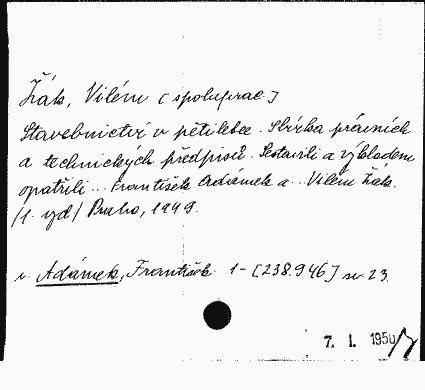 Žák, Vilém [spoluprac.]
Stavebnictví v pětiletce. Sbírka právních
a technických předpisů. Sestavili a výkladem
opatřili... František Adámek a... Vilém Žák.
/1. vyd/ Praha, 1949.
v. Adámek, František 1-[238.946] sv. 23.
7. I. 1950